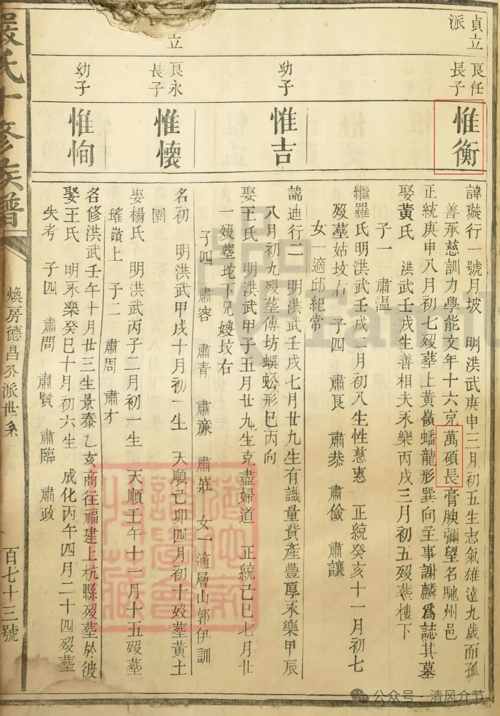 貞立派
良任長子
惟衡
諱璇行一號月坡 明洪武庚申三月初五生志氣雄遠九歲而孤
善承慈訓力學能文年十六克萬碩長膏腴彌望名馳州邑
正統庚申八月初七歿塟上黃嶺蟠龍形巽向主事謝麟爲誌其墓
娶黃氏 洪武壬戌生善相夫永樂丙戌三月初五歿塟樓下
子一 肅溫
繼羅氏明洪武壬戌二月初八生性慈惠 正統癸亥十一月初七
歿塟姑坟右 子四 肅良 肅恭 肅儉 肅讓
女一適邱紀常
幼子
惟吉
諱迪行二 明洪武壬戌七月廿九生有識量貲產豐厚永樂甲辰
八月初九歿塟傅坊蜈蚣形巳丙向
娶王氏 明洪武甲子五月廿九生克盡婦道 正統己巳七月廿
一歿塟坨下兄嫂坟右
子四 肅容 肅青 肅亷 肅莊 女一適層山鄧伊訓
立
良永長子
惟懷
名初 明洪武甲戌十月初一生 天順己卯四月初十歿塟黃土
園
娶楊氏 明洪武丙子二月初一生 天順壬午十一月十五歿塟
嶺上 子二 肅周 肅才
幼子
惟恂
名修洪武壬午十月廿三生景泰乙亥商往福建上杭縣歿塟於彼
娶王氏 明永樂癸巳十月初六生 成化丙午四月二十四歿塟
失考 子四 肅問 肅賢 肅臨 肅政
嚴氏十修族譜
煥房德昌公派世系
百七十三號
公众号·清风介节